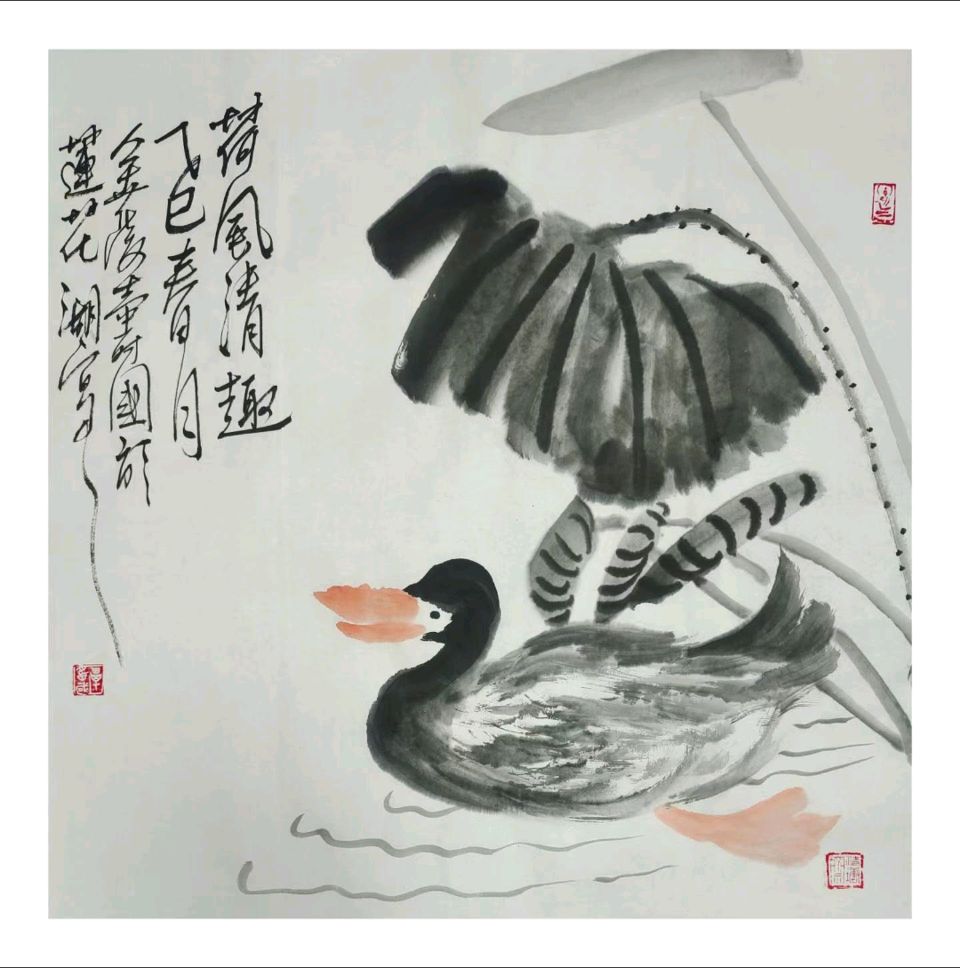 荷風清趣
乙巳春月
金陵壽國於
蓮花湖寫